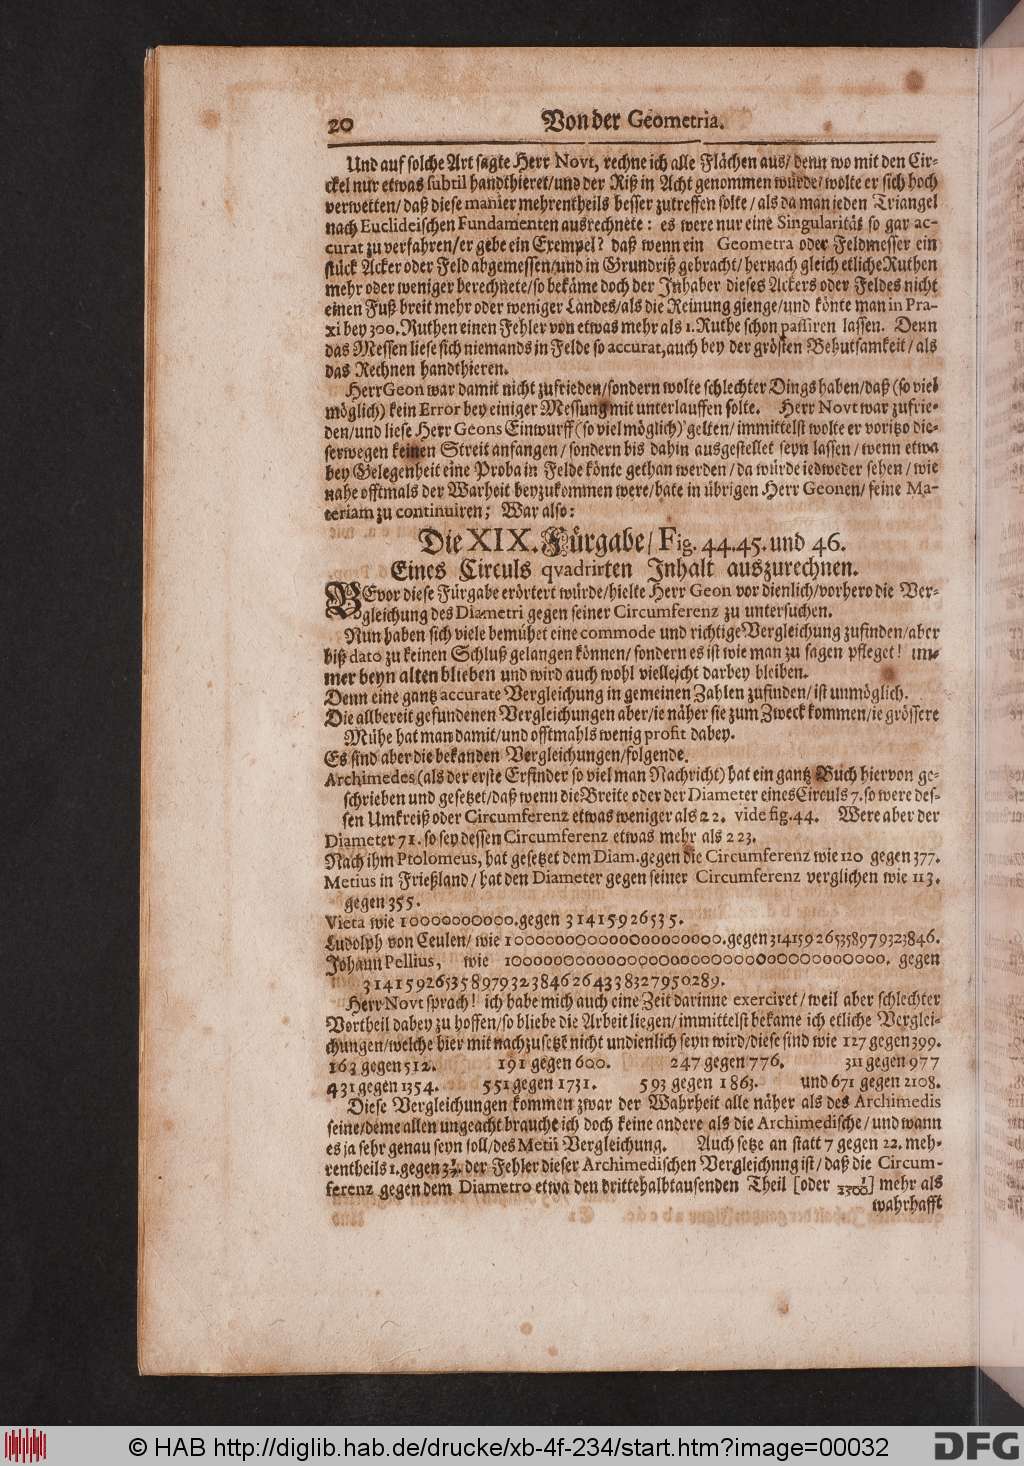 20 Von der Geometria.
Und auf solche Art sagte Herr Novt, rechne ich alle Flächen aus/ denn wo mit den Cir-
ckel nur etwas subtil handthieret/und der Riß in Acht genommen würde/ wolte er sich hoch
verwetten/ daß diese manier mehrentheils besser zutreffen solte/ als da man jeden Triangel
nach Euclideischen Fundamenten ausrechnete: es were nur eine Singularität so gar ac-
curat zu verfahren/er gebe ein Exempel? daß wenn ein Geometra oder Feldmesser ein
stück Acker oder Feld abgemessen/und in Grundriß gebracht/ hernach gleich etliche Ruthen
mehr oder weniger berechnete/so bekäme doch der Inhaber dieses Ackers oder Feldes nicht
einen Fuß breit mehr oder weniger Landes/als die Reinung gienge/und könte man in Pra-
xi bey 300. Ruthen einen Fehler von etwas mehr als 1. Ruthe schon passiren lassen. Denn
das Messen liese sich niemands in Felde so accurat, auch bey der grösten Behutsamkeit/ als
das Rechnen handthieren.
Herr Geon war damit nicht zufrieden/sondern wolte schlechter Dings haben/daß (so viel
möglich) kein Error bey einiger Messung mit unterlauffen solte. Herr Novt war zufrie-
den/und liese Herr Geons Einwurff (so viel möglich) gelten/ immittelst wolte er voritzo die-
serwegen keinen Streit anfangen/ sondern bis dahin ausgestellet seyn lassen/ wenn etwa
bey Gelegenheit eine Proba in Felde könte gethan werden/ da würde iedweder sehen/ wie
nahe offtmals der Warheit beyzukommen were/bate in übrigen Herr Geonen/ seine Ma-
teriam zu continuiren; War also:
Die XIX. Fürgabe/ Fig. 44. 45. und 46.
Eines Circuls qvadrirten Inhalt auszurechnen.
BEvor diese Fürgabe erörtert würde/hielte Herr Geon vor dienlich/vorhero die Ver-
gleichung des Diametri gegen seiner Circumferenz zu untersuchen.
Nun haben sich viele bemühet eine commode und richtige Vergleichung zufinden/aber
biß dato zu keinen Schluß gelangen können/ sondern es ist wie man zu sagen pfleget! im-
mer beyn alten blieben und wird auch wohl vielleicht darbey bleiben.
Denn eine gantz accurate Vergleichung in gemeinen Zahlen zufinden/ ist unmöglich.
Die allbereit gefundenen Vergleichungen aber/ie näher sie zum Zweck kommen/ie grössere
Mühe hat man damit/und offtmahls wenig profit dabey.
Es sind aber die bekanden Vergleichungen/folgende.
Archimedes (als der erste Erfinder so viel man Nachricht) hat ein gantz Buch hiervon ge-
schrieben und gesetzet/daß wenn die Breite oder der Diameter eines Circuls 7. so were des-
sen Umkreiß oder Circumferenz etwas weniger als 22. vide fig. 44. Were aber der
Diameter 71. so sey dessen Circumferenz etwas mehr als 223.
Nach ihm Ptolomeus, hat gesetzet dem Diam. gegen die Circumferenz wie 120 gegen 377.
Metius in Frießland/ hat den Diameter gegen seiner Circumferenz verglichen wie 113.
gegen 355.
Vieta wie 10000000000. gegen 31415926535.
Ludolph von Ceulen/ wie 100000000000000000000. gegen 314159265358979323846.
Johann Pellius, wie 100000000000000000000000000000000000. gegen
314159265358979323846264338327950289.
Herr Novt sprach! ich habe mich auch eine Zeit darinne exerciret/ weil aber schlechter
Vortheil dabey zu hoffen/so bliebe die Arbeit liegen/immittelst bekame ich etliche Verglei-
chungen/welche hier mit nachzusetzt nicht undienlich seyn wird/diese sind wie 127 gegen 399.
163 gegen 512. 191 gegen 600. 247 gegen 776. 311 gegen 977
431 gegen 1354. 551 gegen 1731. 593 gegen 1863. und 671 gegen 2108.
Diese Vergleichungen kommen zwar der Wahrheit alle näher als des Archimedis
seine/deme allen ungeacht braucht ich doch keine andere als die Archimedische/ und wann
es ja sehr genau seyn soll/des Metii Vergleichung. Auch setze an statt 7 gegen 22. meh-
rentheils 1. gegen 3 1/7. der Fehler dieser Archimedischen Vergleichnng ist/ daß die Circum-
ferenz gegen dem Diametro etwa den drittehalbtausenden Theil [oder 1/2500] mehr als
wahrhafft
© HAB http://diglib.hab.de/drucke/xb-4f-234/start.htm?image=00032
DFG